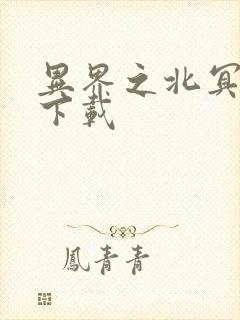 異界之北冥
下載
鳳青青